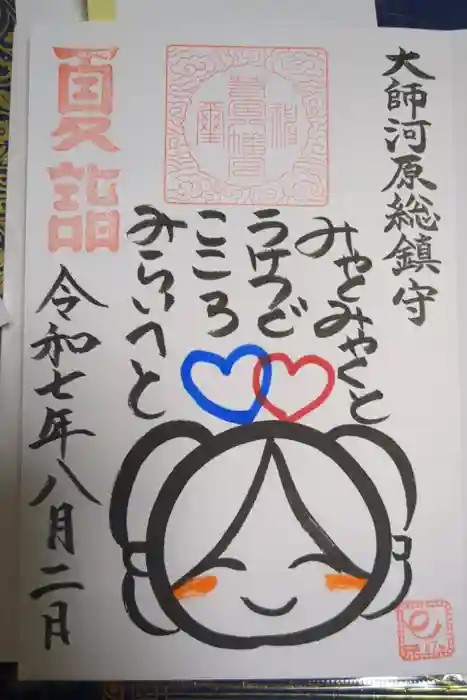 大師河原総鎮守
みやくみやくと
うけつぐ
こころ
みらいへと
夏詣
令和七年八月二日